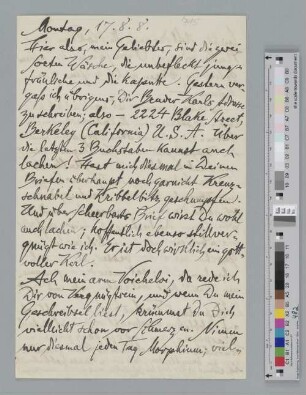 Montag, 17. 8. 8.
Hier also, mein Geliebter, sind die zwei
Sorten Wäsche, die unbefleckt jung-
fräuliche und die Gestern ver-
gaß ich übrigens, Dir Bruder Karls Adresse
zu schreiben; also — 2224 Blake Street,
Berkeley (California) U. S. A. Über
die letzten 3 Buchstaben kannst auch
lachen! Hast mich diesmal in Deinen
Briefen überhaupt noch garnicht Kreuz-
schnabel und Kribbelbitz geschumpfen.
Und über Scheerbarts Brief wirst Du wohl
auch lachen; hoffentlich ebenso stillver-
gnügt wie ich. Er ist doch wirklich ein gott-
voller Kerl.
Ach, mein arm da rede ich
Dir von und wenn Du mein
Geschreibsel liest, krümmst Du Dich
vielleicht schon vor Schmerzen. Nimm
nur diesmal jeden Tag Morphium; viel-